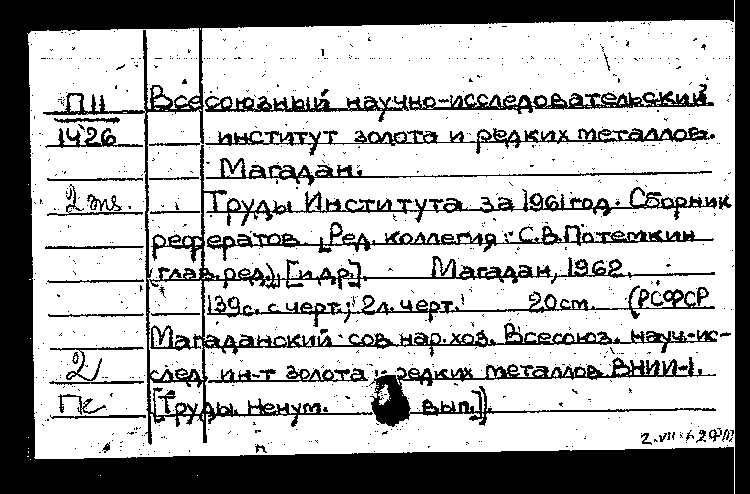 П11 Всесоюзный научно-исследовательский
1426 институт золота и редких металлов.
Магадан.
2 экз. Труды Института за 1961 год. Сборник
рефератов. [Ред. коллегия: С.В. Потемкин
(глав. ред.), [и др.]. Магадан, 1962.
139 с. с черт.; 2 л. черт. 20 cm. (РСФСР
Магаданский сов. нар. хоз. Всесоюз. науч.-ис-
2 след. ин-т золота и редких металлов ВНИИ-1.
Пс [Труды. Ненум. вып.]).